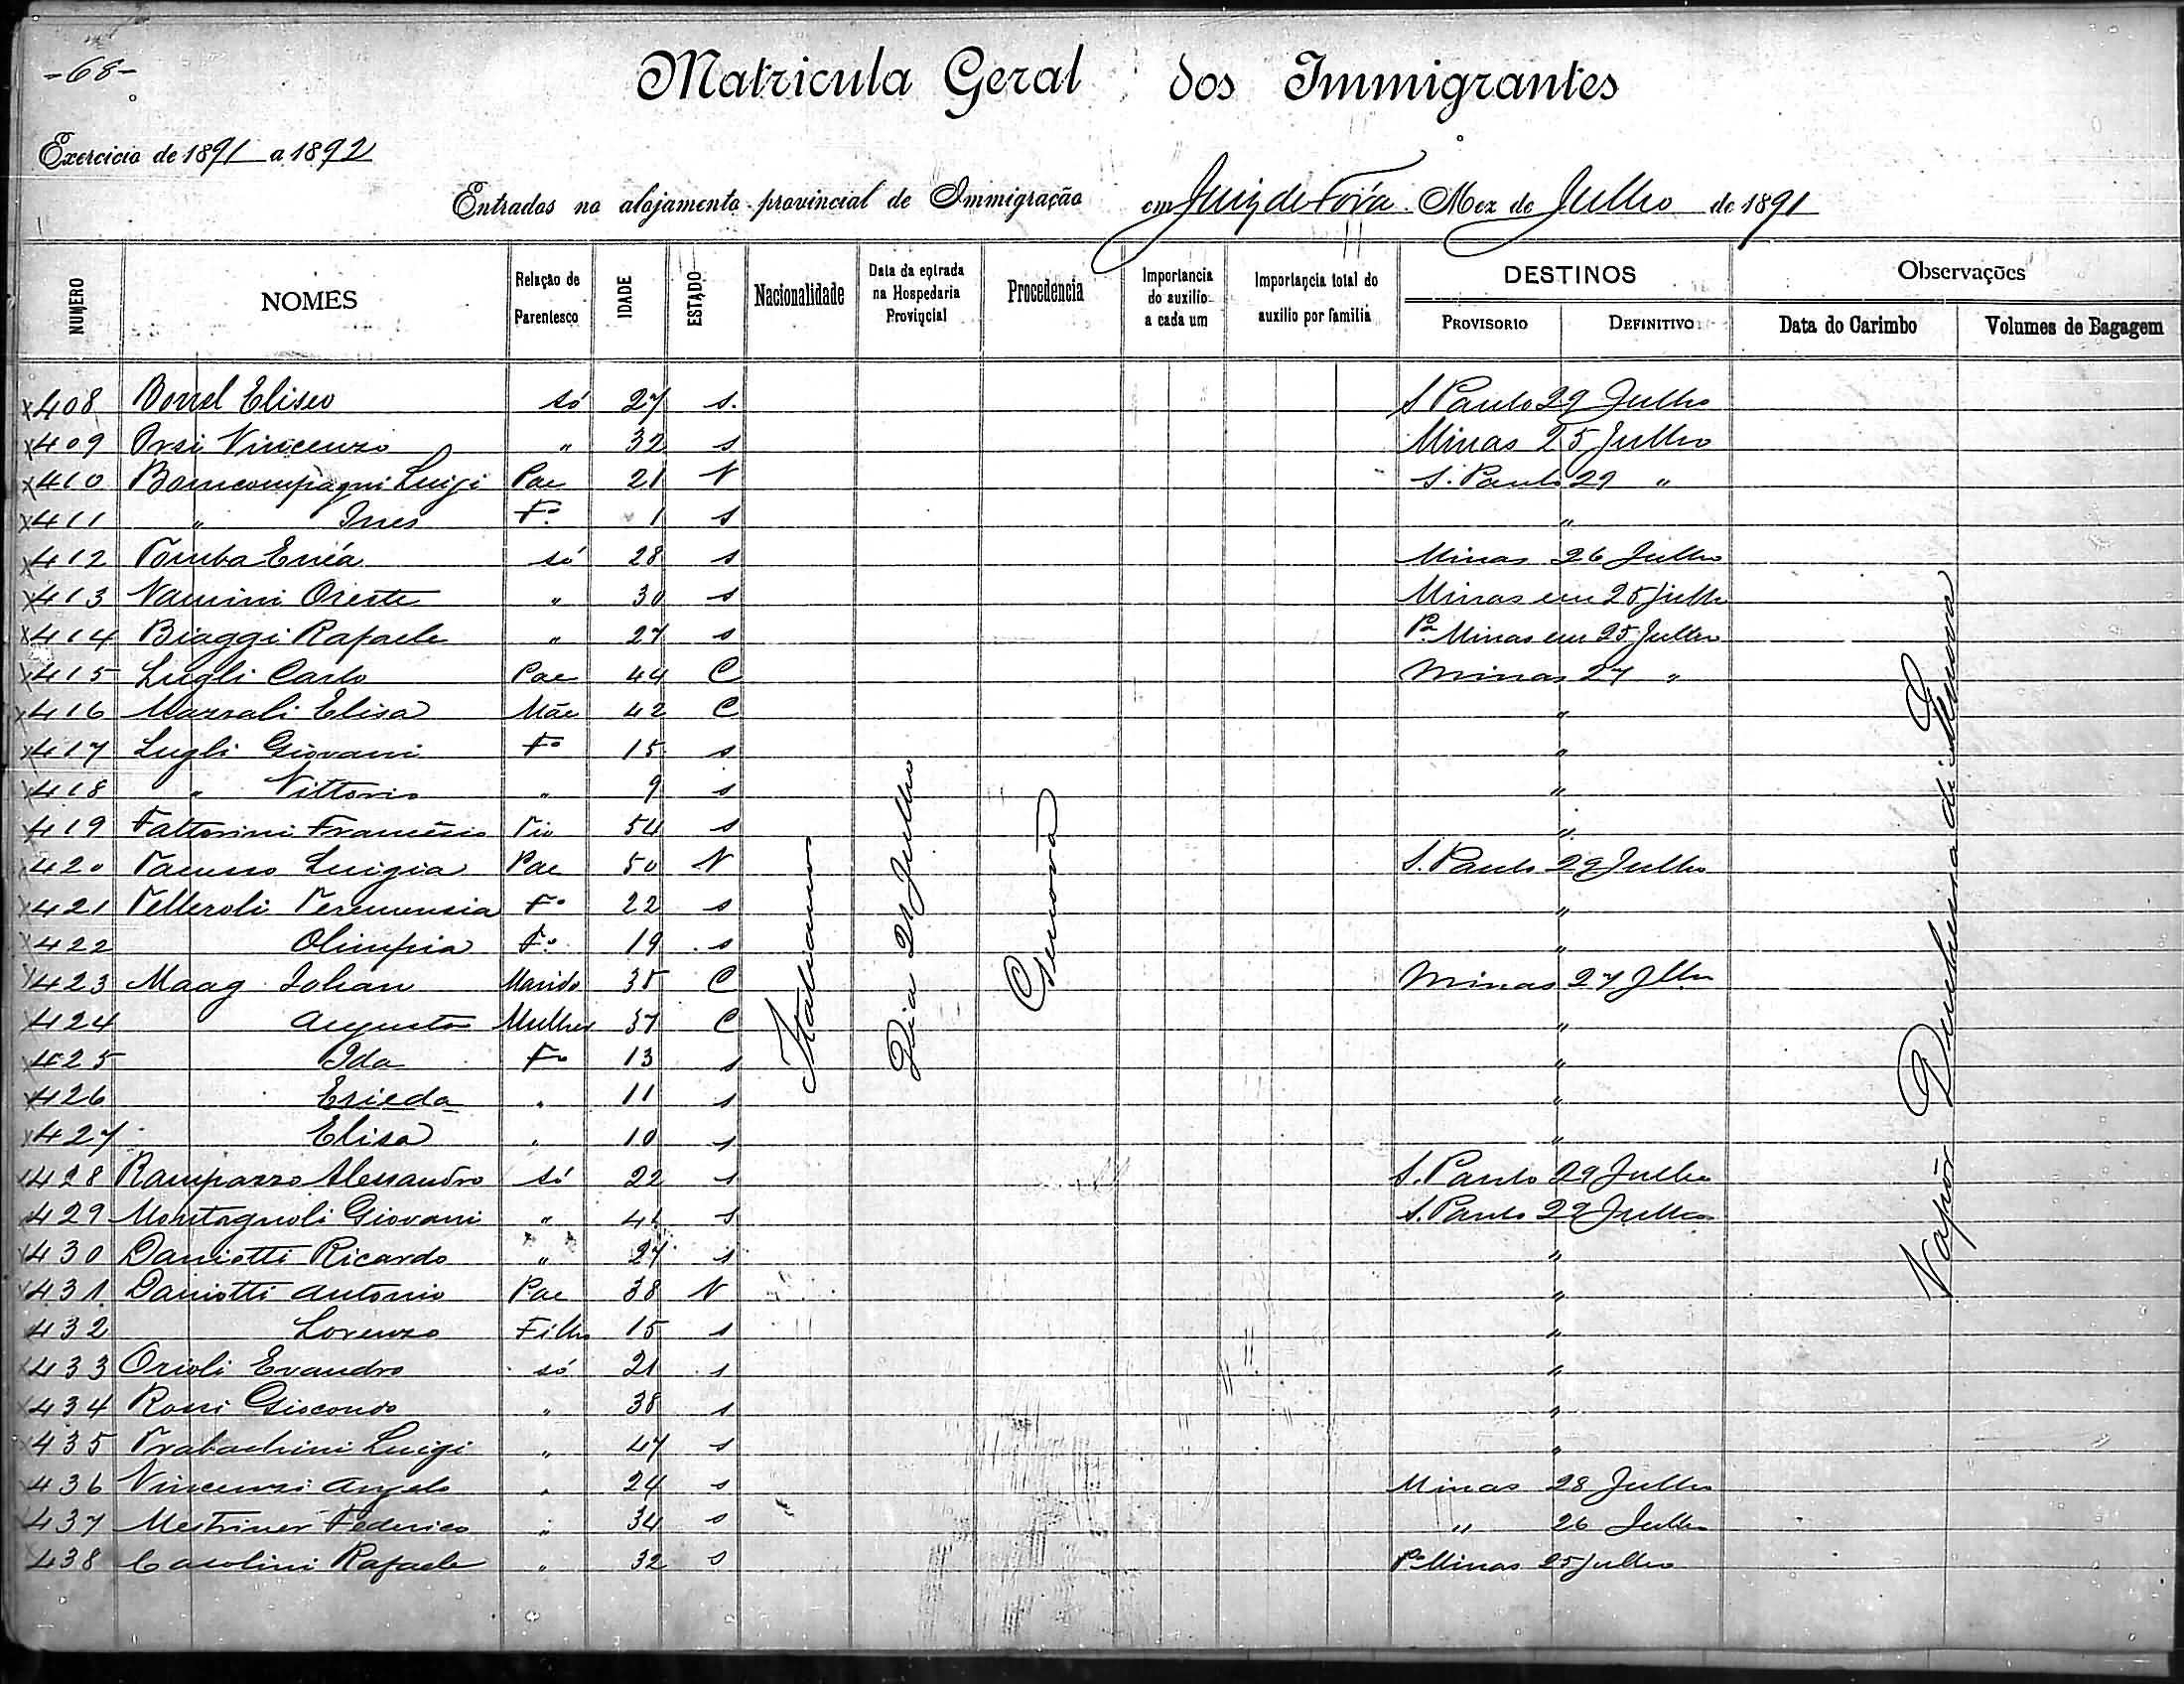 -68-
Matricula Geral dos Immigrantes
Exercicio de 1891 a 1892
Entrados no alojamento provincial de Immigração em Juiz de Fóra. Mez de Julho de 1891
NUMERO NOMES Relação de Parentesco IDADE ESTADO Nacionalidade Data da entrada na Hospedaria Provincial Procedencia Importancia do auxilio a cada um Importancia total do auxilio por familia DESTINOS PROVISORIO DEFINITIVO Observações Data do Carimbo Volumes de Bagagem
x408 Borrel Eliseo só 27 s. S Paulo 29 Julho
x409 Orsi Vincenzo " 32 s Minas 25 Julho
x410 Bomcompagni Luigi Pae 21 V S. Paulo 29 "
x411 " Ines Fª 1 s "
x412 Tomba Enéa só 28 s Minas 26 Julho
x413 Vannini Oreste " 30 s Minas em 25 Julho
x414 Biaggi Rafaele " 27 s Pª Minas em 25 Julho
x415 Lugli Carlo Pae 44 C Minas 27 "
x416 Marsali Elisa Mãe 42 C "
x417 Lugli Giovani Fº 15 s "
x418 " Vittorio " 9 s "
x419 Fattorini Francesco Tio 54 s "
x420 Luigia Pae 50 V S. Paulo 29 Julho
x421 Telleroli Fª 22 s "
x422 Olimpia Fª 19 s "
x423 Maag Johan Marido 35 C Minas 27 Jlho
x424 Augusta Mulher 37 C "
x425 Ida Fª 13 s "
x426 Erieda " 11 s "
x427 Elisa " 10 s "
x428 Rampazzo Alessandro só 22 s S. Paulo 29 Julho
x429 Montagnoli Giovani " s S. Paulo 29 Julho
x430 Daniotti Ricardo " 27 s "
x431 Daniotti Antonio Pae 38 V "
x432 Lorenzo Filho 15 s "
x433 Orioli Evandro só 21 s "
x434 Rossi Giocondo " 38 s "
x435 Trabachini Luigi " 47 s "
x436 Vincenzi Angelo " 24 s Minas 28 Julho
x437 Mestriner Federico " 34 s " 26 Julho
x438 Casolini Rafaele " 32 s Pª Minas 25 Julho
Italianos
Dia 21 Julho
Genova
Vapôr Duchessa di Genova